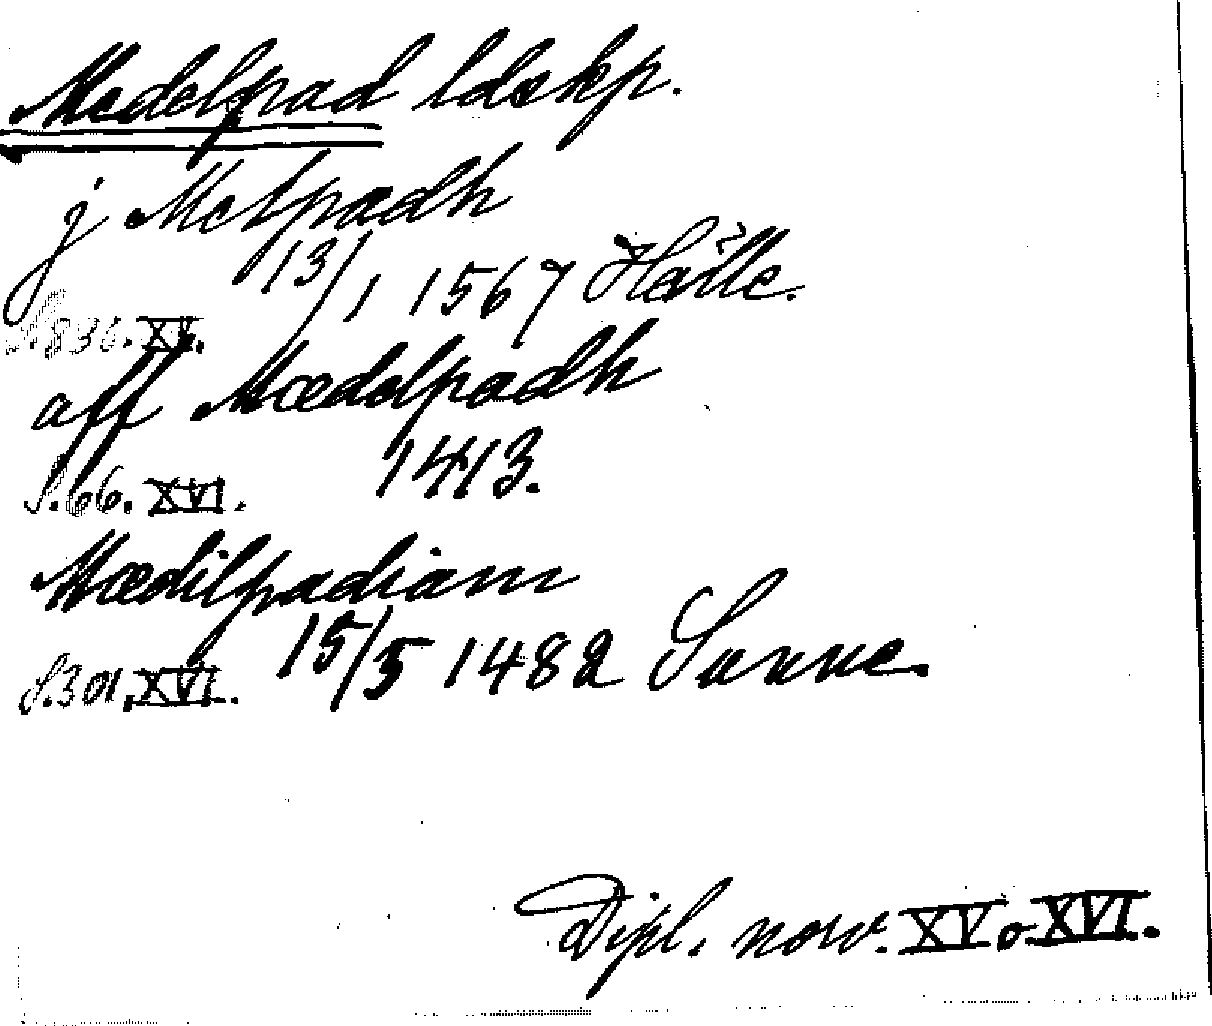 Medelpad ldskp.
j Metpadh
13/1 1567 Hälle.
S. 836. XV.
aff Mædelpadh
1413.
S. 66. XVI.
Mædilpadiam
15/5 1482 Sunne.
S. 301. XVI.
Dipl. norv. XV o. XVI.